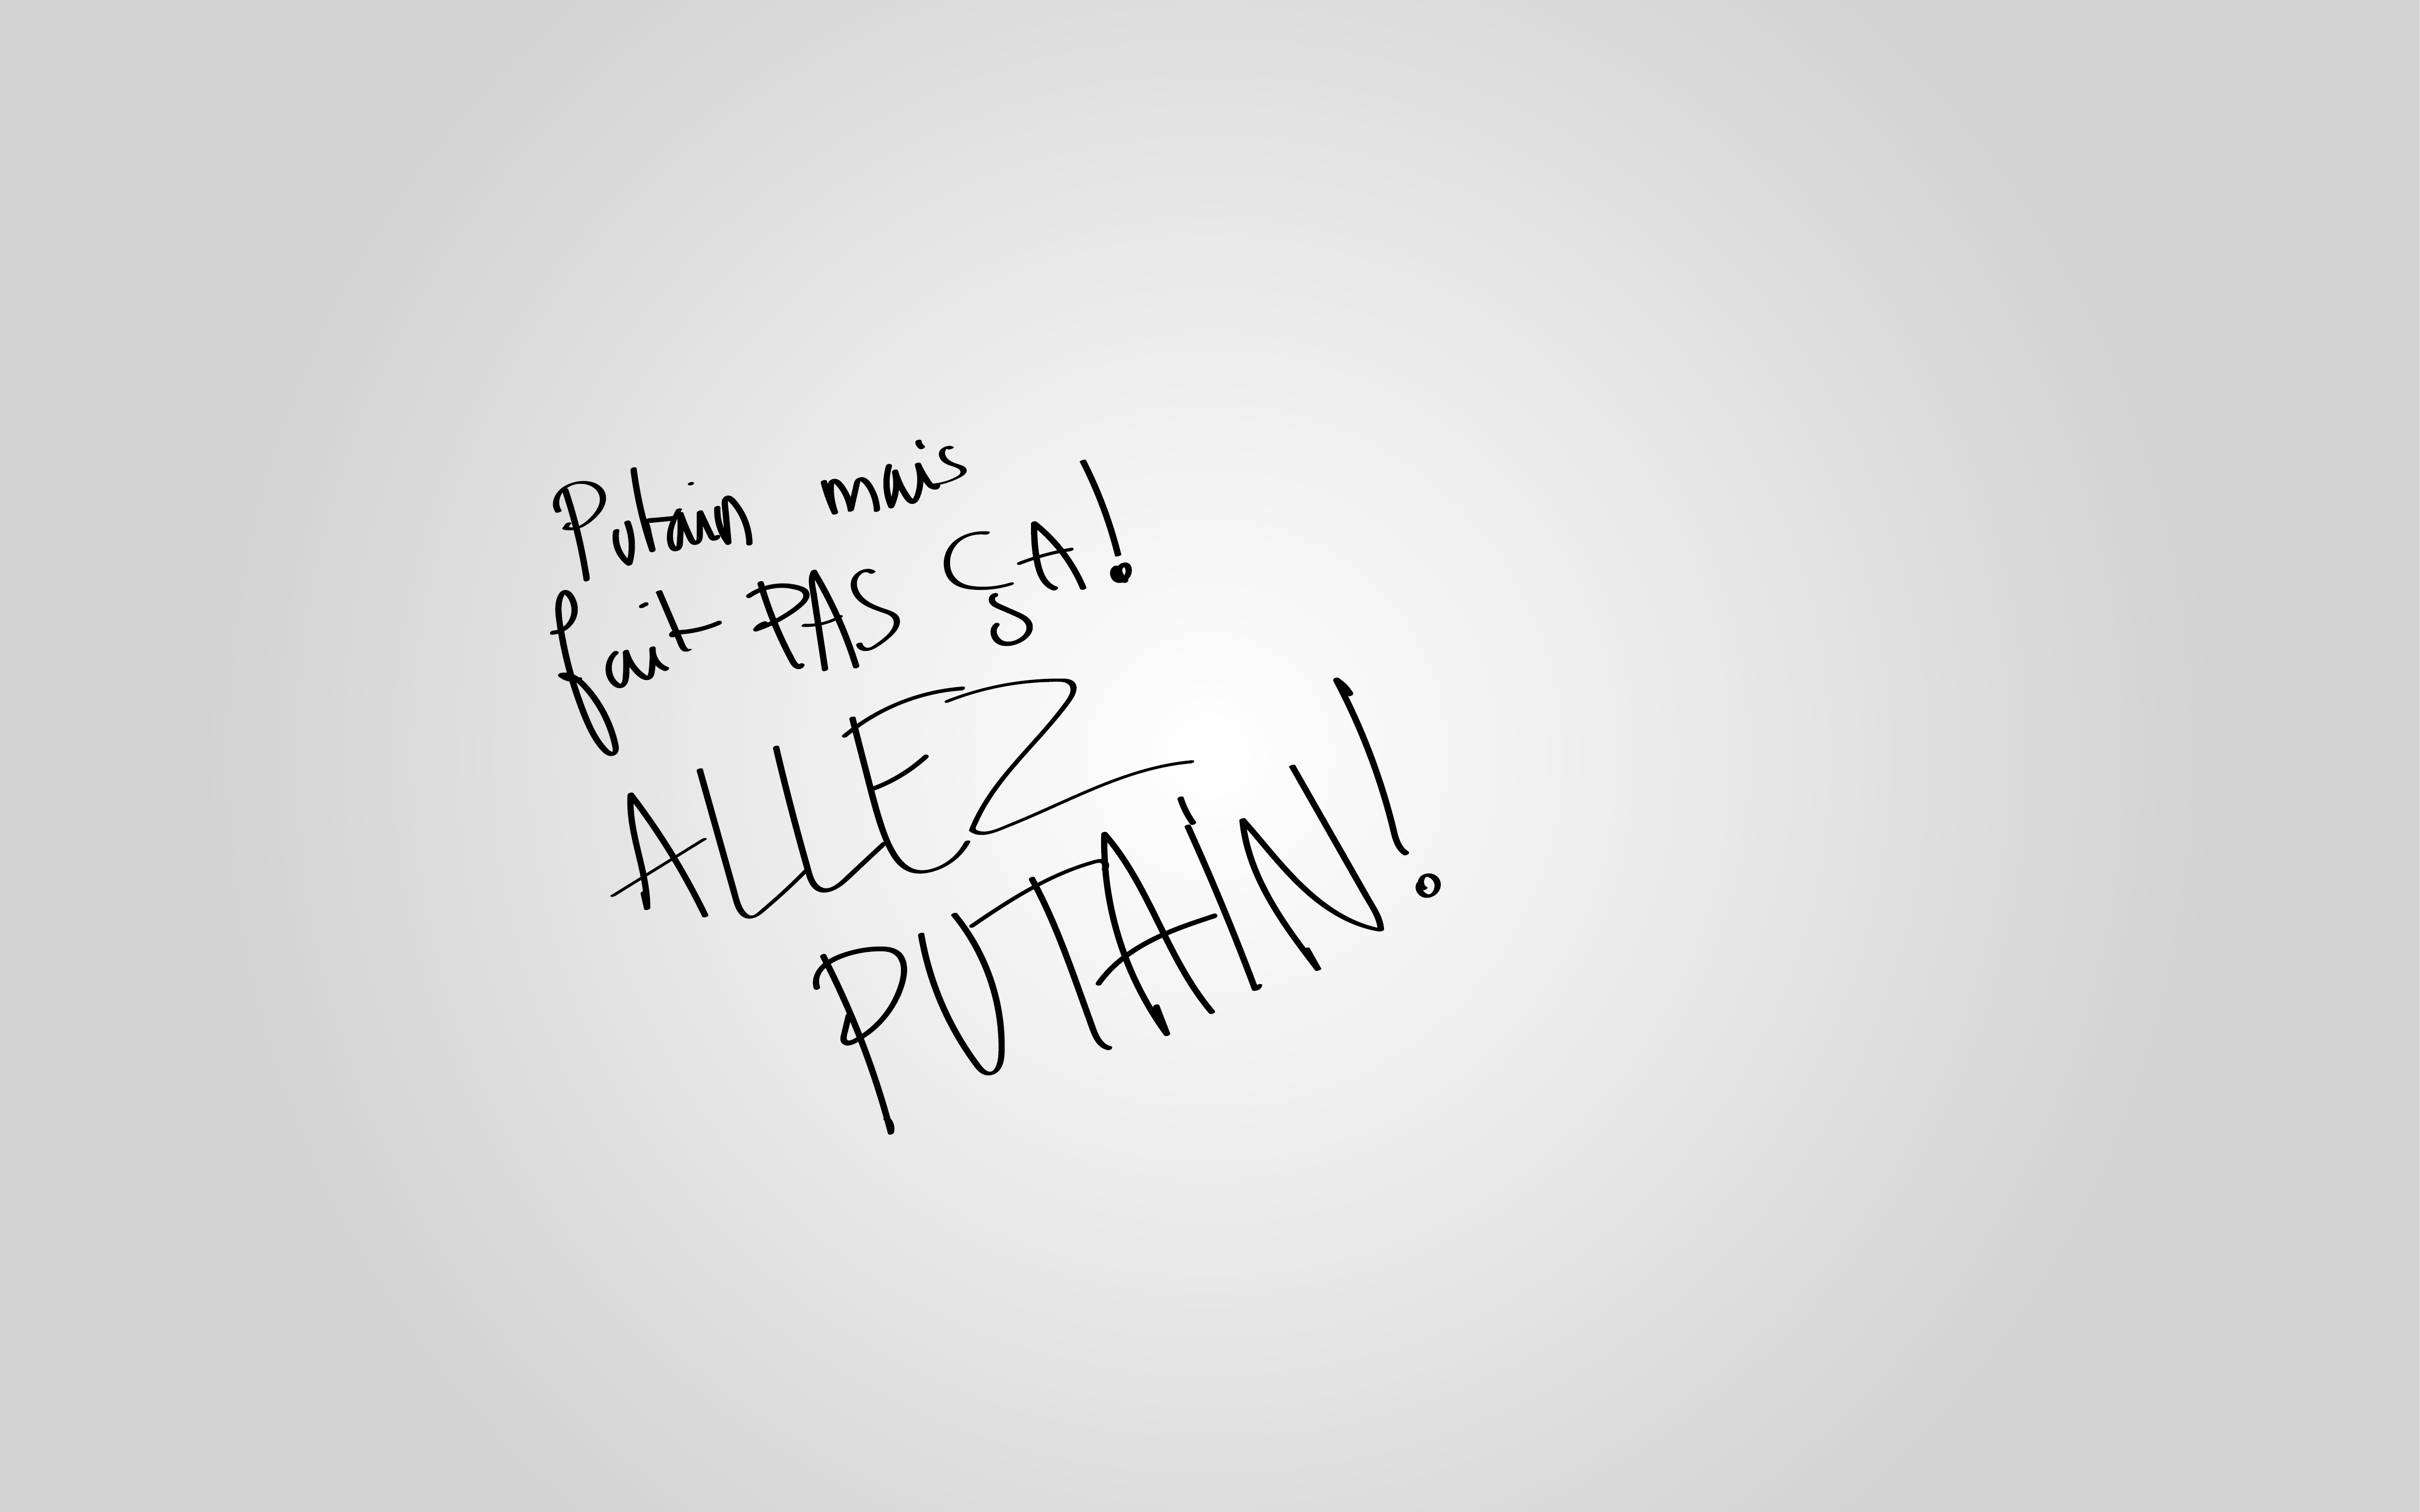 Putain mais
fait PAS ÇA!
ALLEZ
PUTAIN!